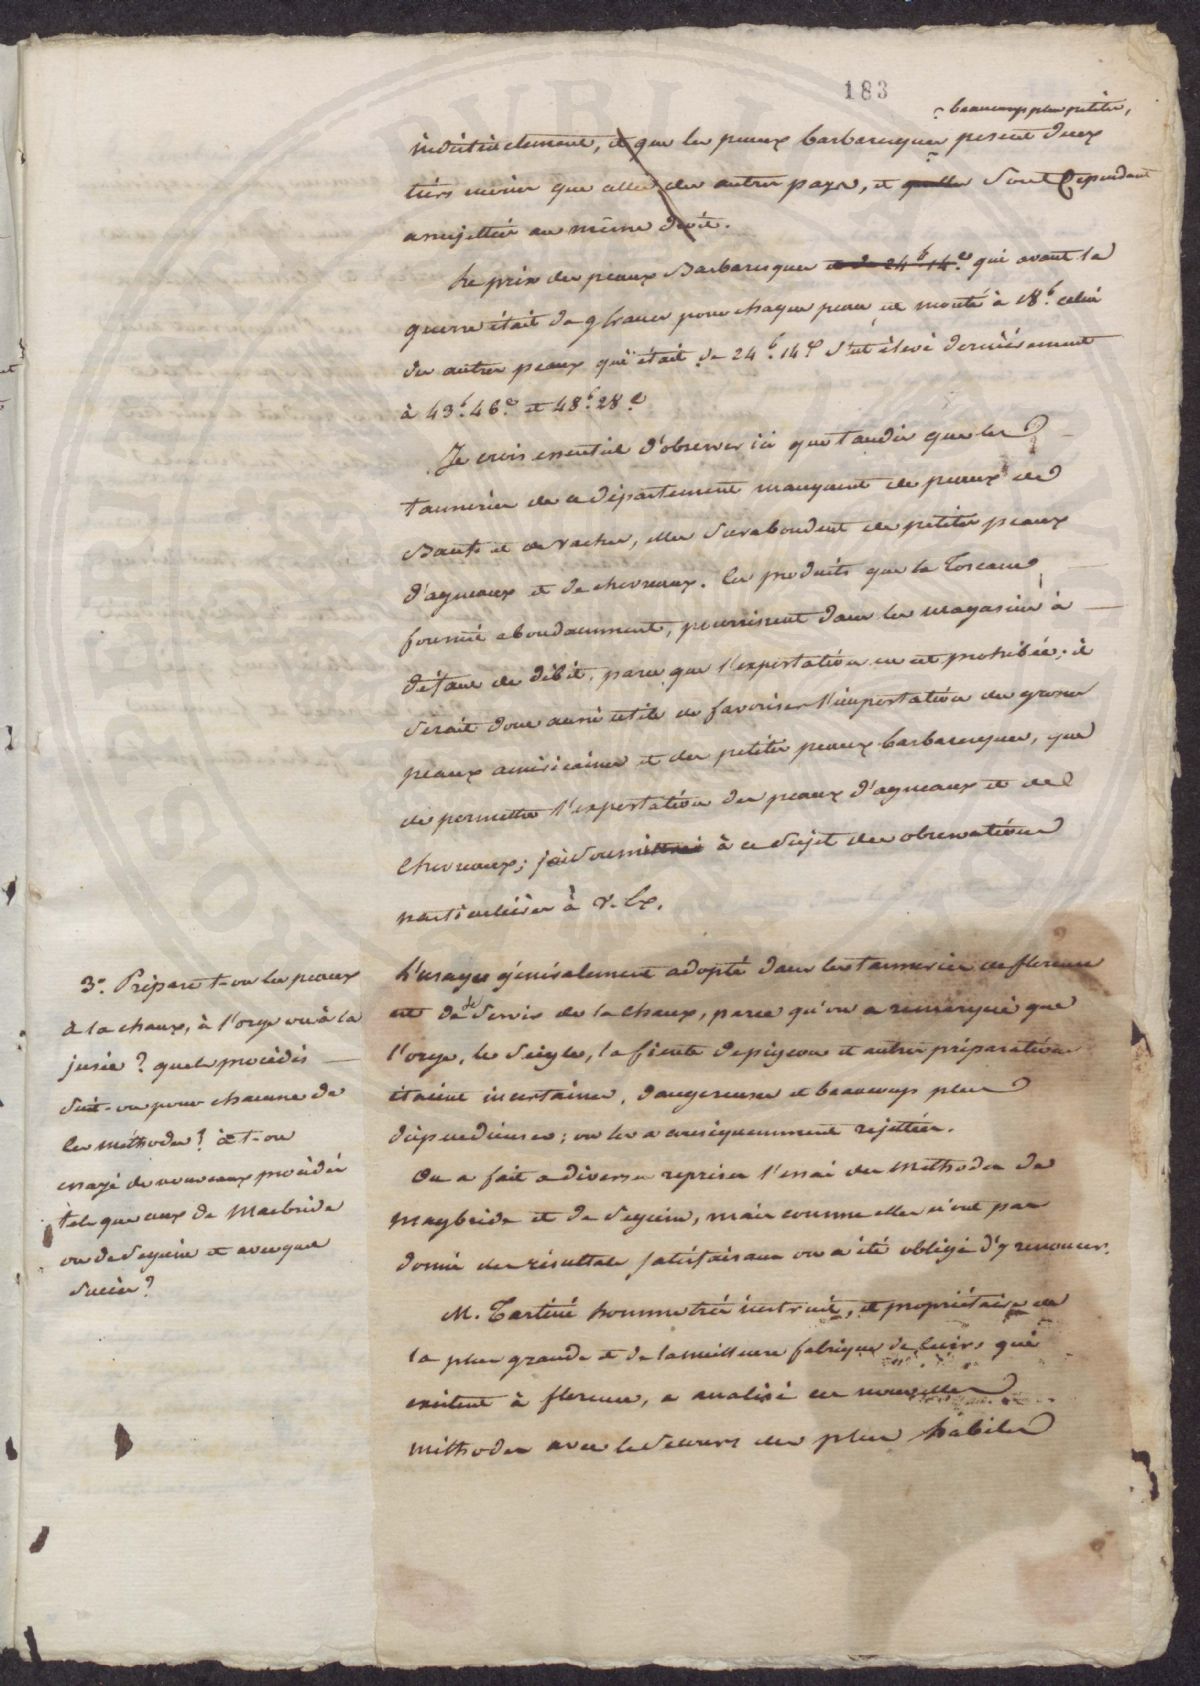 183
beaucoup plus petites,
indistinctement, et que les peaux barbaresques pesent deux
tiers moins que celles des autres pays, et qu'elles sont Cependant
assujetties au même droit.
Le prix des peaux Barbaresques et de 24f. 14c. qui avant la
guerre était de 9 francs pour chaque peau est monté à 18f. celui
des autres peaux qui était de 24f. 14c s'est élevé dernièrement
à 43f. 46c. et 48f. 28c
Je crois essentiel d'observer ici que tandis que les
tanneries de ce département manquent de peaux de
Bœufs et de vaches, elles surabondent de petites peaux
d'agneaux et de chevreaux. Ces produits que la Toscane
fournit abondamment, pourrissent dans les magasins à
défaut de débit, parce que l'exportation en est prohibée; il
serait donc aussi utile de favoriser l'importation des grosses
peaux américaines et des petites peaux barbaresques, que
de permettre l'exportation des peaux d'agneaux et de
Chevreaux; j'ai soumis à ce sujet des observations
particulières à V. Ex.
3o. Prépare t-on les peaux
à la chaux, à l'orge ou à la
jusée? quels procédés
suit-on pour chacune de
ces méthodes? a t-on
essayé de nouveaux procédés
tels que ceux de Macbride
ou de Seguin et avec quel
succès?
L'usage généralement adopté dans les tanneries de florence
est de se servir de la chaux, parce qu'on a remarqué que
l'orge, le seigle, la fiente de pigeon et autres préparations
étaient incertaines, dangereuses et beaucoup plus
dispendieuses; on les a conséquemment rejettées.
On a fait a diverses reprises l'essai des Méthodes de
Maybride et de Seguin, mais comme elles n'ont pas
donné des résultats satisfaisans on a été obligé d'y renoncer.
M. Tartini homme très instruit, et propriétaire de
la plus grande et de la meilleure fabrique de cuirs qui
existent à florence, a analisé ces nouvelles
méthodes avec le secours des plus habiles